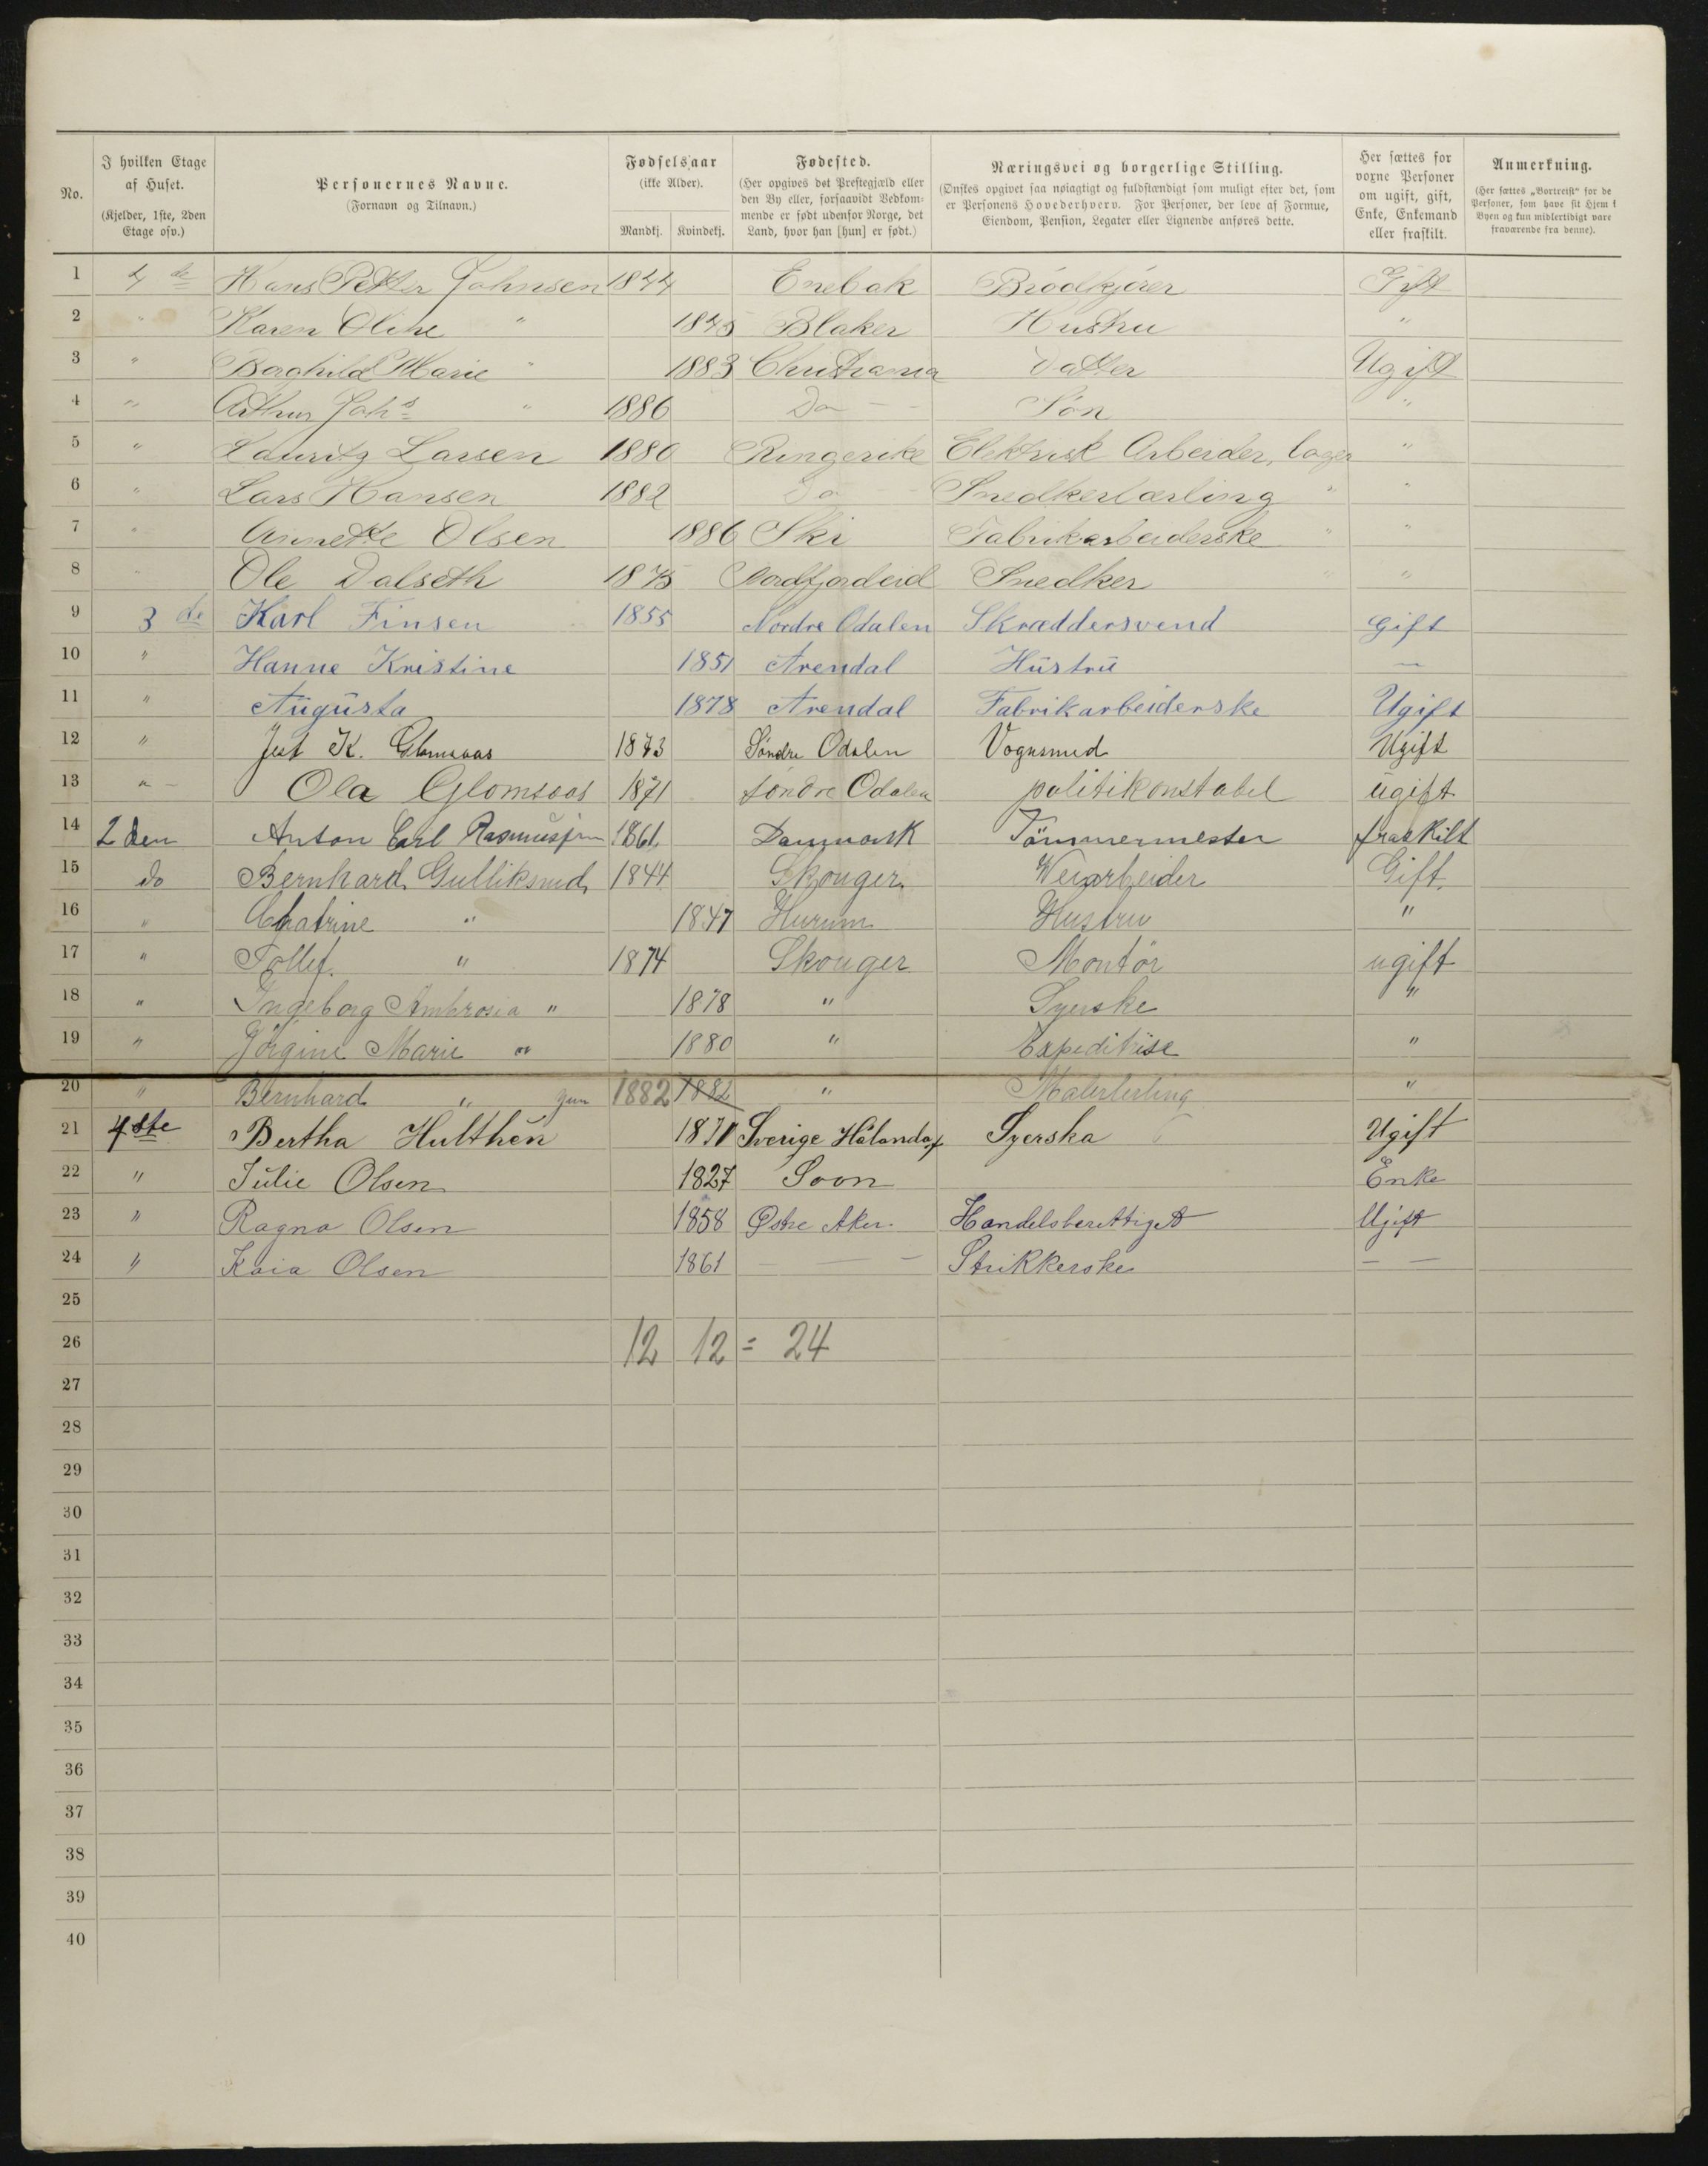 No. | I hvilken Etage af Huset. (Kjelder, 1ste, 2den Etage osv.) | Personernes Navne. (Fornavn og Tilnavn.) | Fødselsaar (ikke Alder). Mandkj. | Kvindekj. | Fødested. (Her opgives det Prestegjæld eller den By eller, forsaavidt Vedkommende er født udenfor Norge, det Land, hvor han [hun] er født.) | Næringsvei og borgerlige Stilling. (Ønskes opgivet saa nøiagtigt og fuldstændigt som muligt efter det, som er Personens Hovederhverv. For Personer, der leve af Formue, Eiendom, Pension, Legater eller Lignende anføres dette. | Her sættes for voxne Personer om ugift, gift, Enke, Enkemand eller fraskilt. | Anmerkning. (Her sættes „Bortreist“ for de Personer, som have sit Hjem i Byen og kun midlertidigt vare fraværende fra denne).
1 4 de Hans Petter Johnsen 1844 Enebak Brödkjörer Gift
2 " Karen Oline " 1845 Blaker Hustru "
3 " Borghild Marie " 1883 Christiania Datter Ugift
4 " Arthur Joh's " 1886 Do — Sön "
5 " Lauritz Larsen 1880 Ringerike Elektrisk Arbeider, "
6 " Lars Hansen 1882 Do — Snedkerlærling " "
7 " Annette Olsen 1886 Ski Fabrikarbeiderske " "
8 " Ole Dalseth 1875 Nordfjordeid Snedker " "
9 3 de Karl Finsen 1855 Nordre Odalen Skræddersvend gift
10 " Hanne Kristine 1851 Arendal Hüstrü —
11 " Augüsta 1878 Arendal Fabrikarbeiderske Ugift
12 " K. Glomsaas 1873 Söndre Odalen Vognsmed Ugift
13 " — Ola Glomsaas 1871 söndre Odalen politikonstabel ügift
14 2 den Anton Carl Rasmussen 1861 Danmark Tömmermester fraskilt
15 do Bernhard Gulliksrud 1844 Skouger Weiarbeider Gift.
16 " Chatrine " 1847 Hurum Hustru "
17 " Tollef. " 1874 Skouger Montör ugift
18 " Ingeborg Ambrosia " 1878 " Syerske "
19 " Jörgine Marie " 1880 " Expeditrise "
20 " Bernhard " jun 1882 1882 " Malerlerling "
21 4 ste Bertha Hulthén 1871 Sverige Syerska Ugift
22 " Julie Olsen 1827 Soon Enke
23 " Ragna Olsen 1858 Østre Aker Handelsberettiget Ugift
24 " Kaia Olsen 1861 — — — Strikkerske — —
25
26 12 12 = 24
27
28
29
30
31
32
33
34
35
36
37
38
39
40